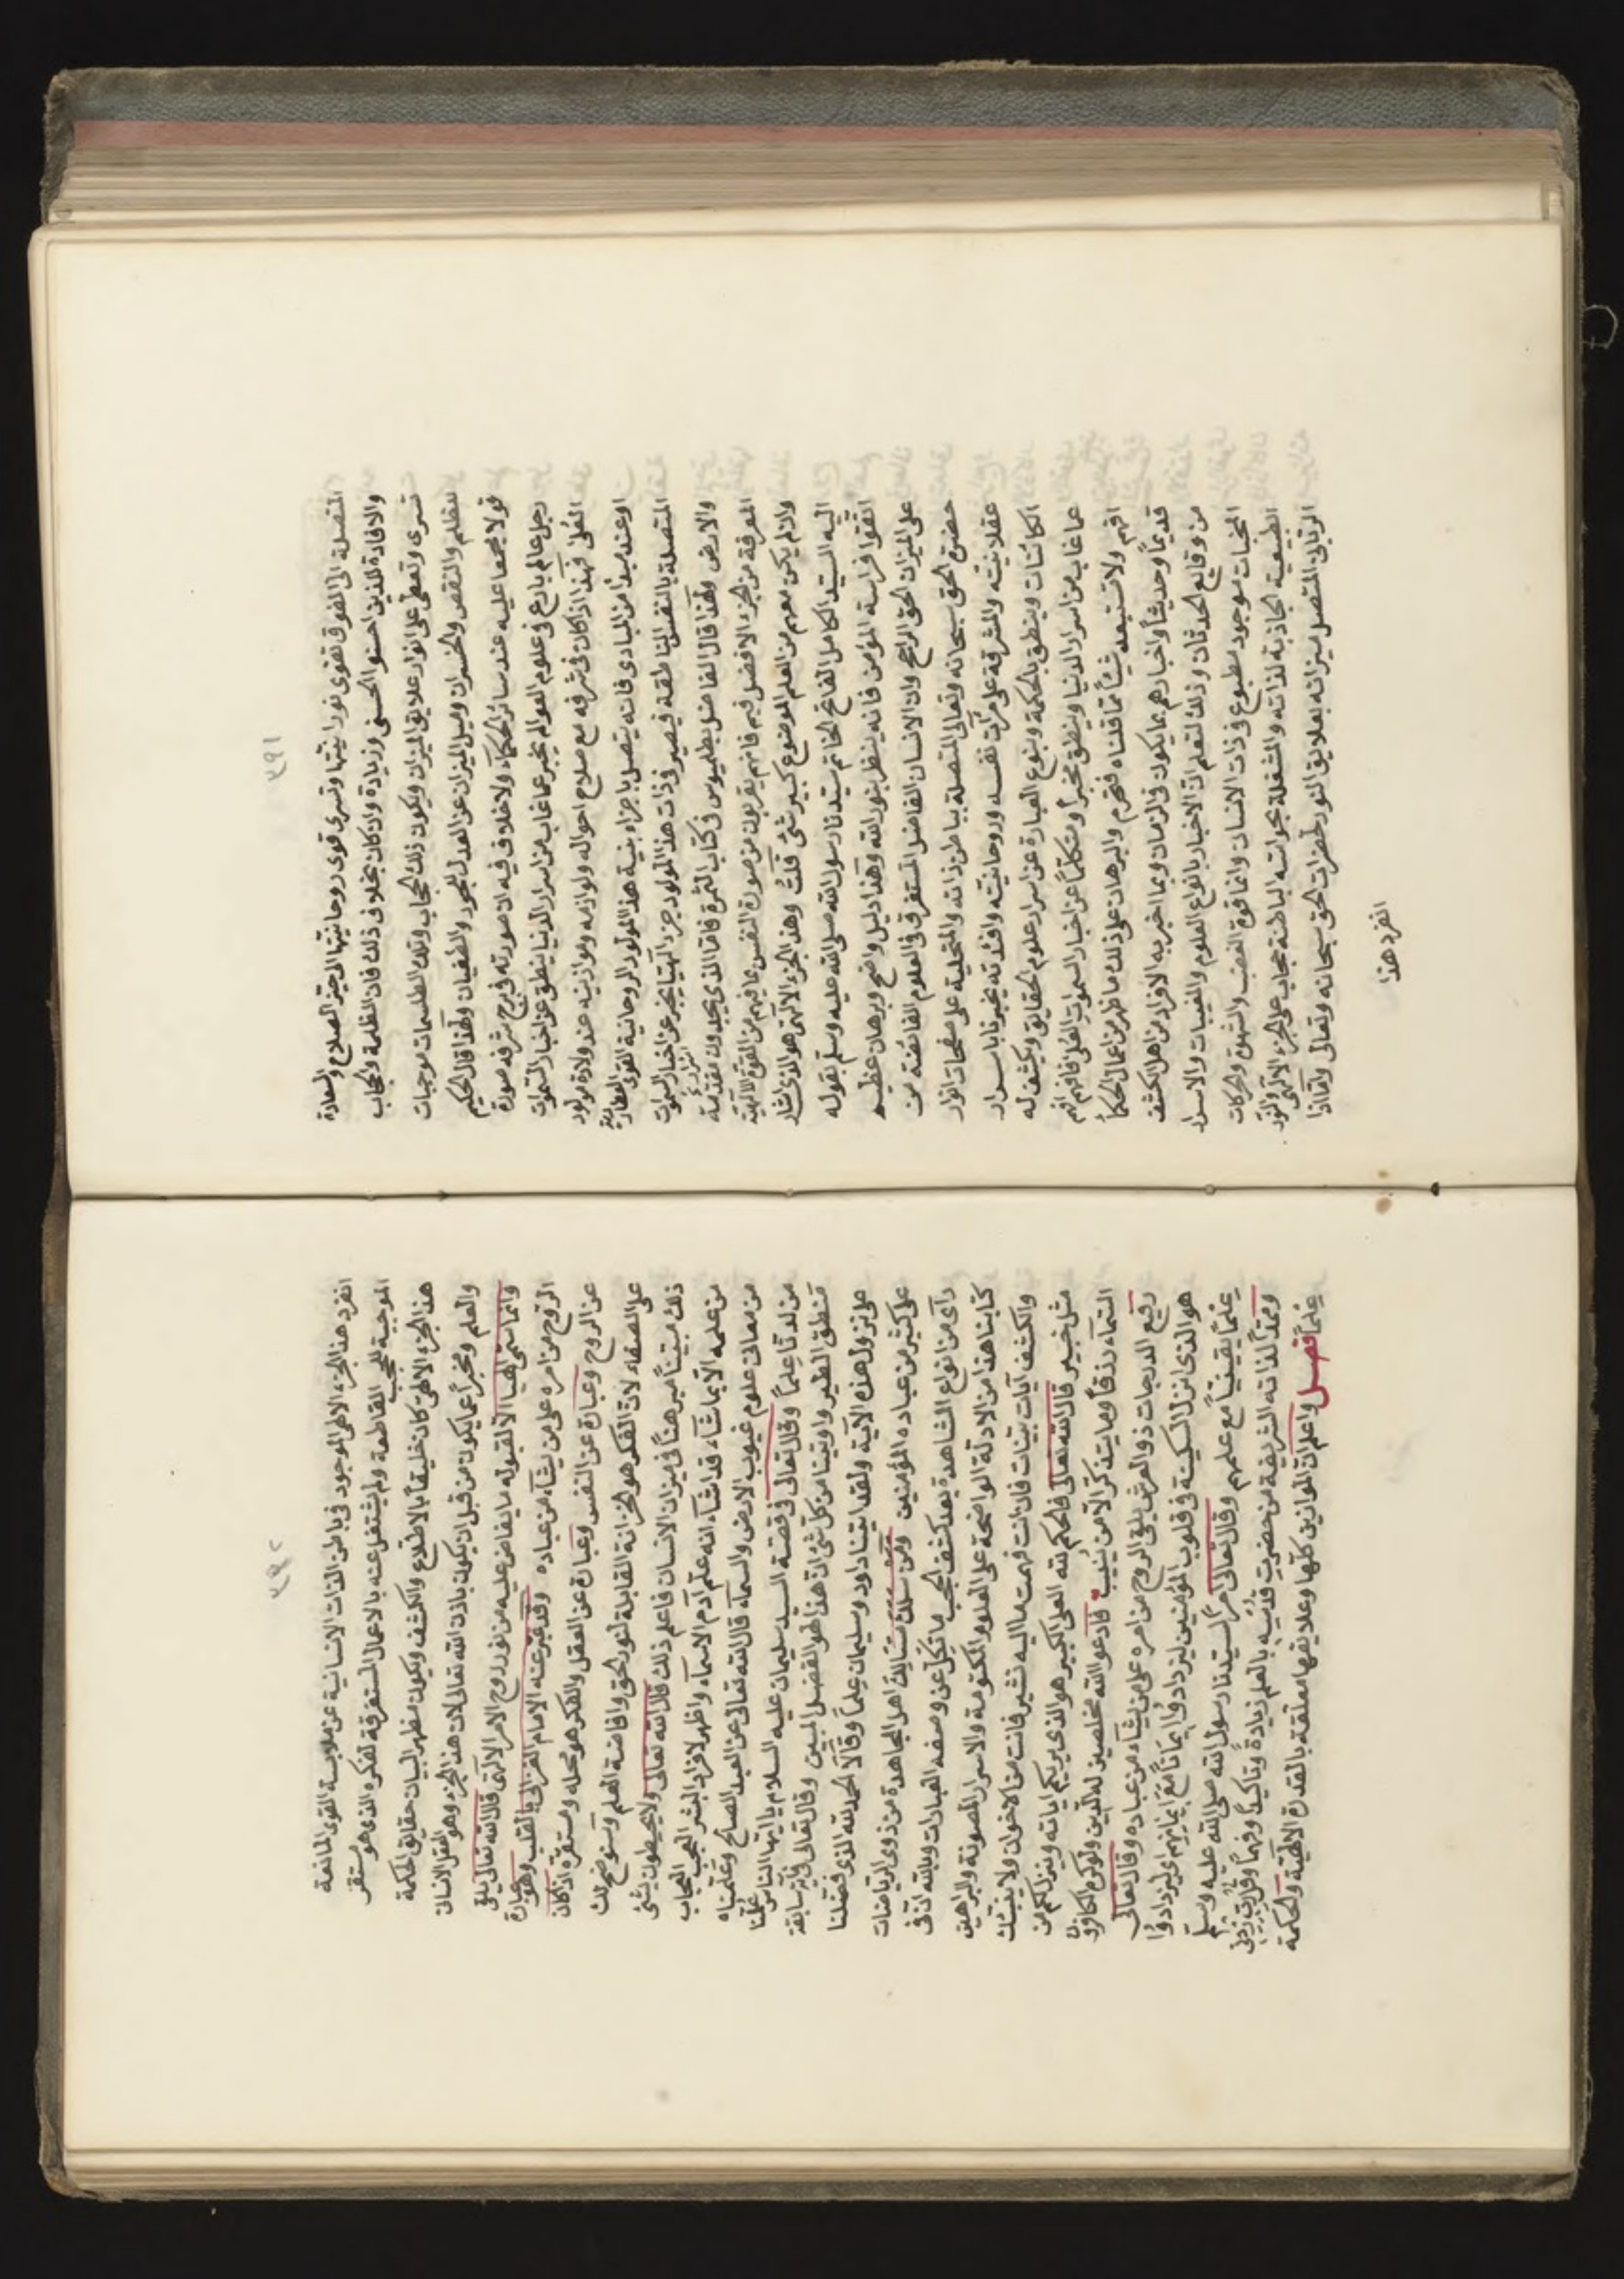 ٣٩١
المتصلة الى الفوق تقوى نورانيتها وتسرى قوى روحانيتها الى حيز الصلاح والسعادة
والافادة للذين احسنوا الحسنى وزيادة وان كان بخلاف ذلك فان الظلمة والحجاب
تسرى وتعطى على انوار علايق الميزان ويكون ذلك الحجاب وتلك الظلمات موجبات
للظلم والنقص والخسران وميل الميزان عن العدل للجور والطغيان ولهذا قال الحكيم
قولا مجمعا عليه عند سائر الحكماء ولا خلاف فيه ان صورته فى برج شرفه صورة
رجل عالم بارع فى علوم العوالم يخبر عما غاب من اسرار الدنيا ينطق عن اخبار السموات
العلى فهذا اذا كان فى شرفه مع صلاح احواله ولوازمه وموازينه عند ولادة مولود
او عند مبدأ من المبادى فانه يتصل باجزاء بنية هذا المولود الروحانية القوى العطاردية
المتصلة بالنفس الناطقة فيصير فى ذات هذا المولود جزء الهيا يخبر عن اخبار السموات
والارض ولهذا قال الفاضل بطلميوس فى كتاب الثمرة فاما الذى يجدون تقدمة
المعرفة من الجزء الافضل فيهم فانهم يقربون من صورة النفس بما فيهم من القوة الالهية
وان لم يكن معهم من العلم الموضوع كبير شئ قلت وهذا الجزء الالهى هو الذى اشار
اليه السيد الكامل الفاتح الخاتم سيدنا رسول الله صلى الله عليه وسلم بقوله
اتقوا فراسة المؤمن فانه ينظر بنور الله وهذا دليل واضح وبرهان عظيم
على الميزان الحق الراجح وان الانسان الفاضل المستغرق فى العلوم الفائضة من
حضرة الحق سبحانه وتعالى المتصلة بباطن ذاته والمتجلية على صفحات انوار
عقلانيته والمشرقة على مرآت نفسه وروحانيته وافئدته يخبرنا باسرار
الكائنات وينطق بالحكمة وبنوع العبارة عن اسرار علوم الحقايق ويكشف له
عما غاب من اسرار الدنيا وينطق مخبرا ومتكلما عن اخبار السموات العلى فافهم
افهم ولا تستبعد شيئا مما قلناه فتحرم والبرهان على ذلك ما ظهر من اعمال الحكماء
قديما وحديثا واخبارهم بما يكون فى الزمان وبما اخبر به الافراد من اهل الكشف
من وقايع الحدثان وذلك لتعلم ان الاخبار بانواع العلوم والمغيبات والاسرار
المخبات موجود مطبوع فى ذات الانسان وانما قوة الغضب والشهوة والحركات
الطبيعية الجاذبة لذاته والمشغلة بحواسه الباطنة حجاب على الجزء الالهى والنور
الربانى المتصل ميزانه بعلايق النور لحضرات الحق سبحانه وتعالى واما اذا
انفرد هذا
٣٩٢
انفرد هذا الجزء الالهى الموجود فى باطن الذات الانسانية عن ملابسة القوى المانعة
الموجبة للحجب القاطعة ولم يشتغل عنه بالاعمال المستغرقة لفكره الذى هو مستقر
هذا الجزء الالهى كان خليقا بالاطلاع والكشف ويكون مظهر البيان حقايق الحكمة
والعلم ومخبرا عما يكون من قبل ان يكون باذن الله تعالى لان هذا الجزء وهو العقل الانسانى
وانما سمى الهيا الا لقبوله ما يفاض عليه من نور روح الامر الالهى قال الله تعالى يلقى
الروح من امره على من يشاء من عباده وقد عبر عنه الامام الغزالى بالقلب وهو عبارة
عن الروح وعبارة عن النفس وعبارة عن العقل والفكر هو محله ومستقره اذا كان
على الصفاء لان الفكر هو الخزانة القابلة لنور الحق وافاضة العلم وسنوضح لك
ذلك مبينا مبرهنا فى ميزان الانسان فاعلم ذلك قال الله تعالى ولا يحيطون بشئ
من علمه الا بما شاء قد اشاء انه علم آدم الاسماء واظهر لافراد البشر العجب العجاب
من معانى علوم غيوب الارض والسماء قال الله تعالى عن العبد الصالح وعلمناه
من لدنا علما وقال تعالى فى قصة السيد سليمان عليه السلام يا ايها الناس علمنا
منطق الطير واوتينا من كل شئ ان هذا لهو الفضل المبين وقال تعالى فى سابقة
على نزول هذه الآية ولقد اتينا داود وسليمان علما وقالا الحمد لله الذى فضلنا
على كثير من عباده المؤمنين ومن سلك مسالك اهل المجاهدة من ذوى الرياضات
رأى من انواع المشاهدة بعد كشف الحجب ما تكل عن وصفه العبارات وبالله ان فى
كتابنا هذا من الادلة الواضحة على العلوم المكتومة والاسرار المصونة والبراهين
والكشف آيات بينات فان انت فهمت ما اليه نشير فانت من الاخوان ولا ينبئك
مثل خبير قال الله تعالى فالحكم لله العلى الكبير هو الذى يريكم اياته وينزل لكم من
السماء رزقا وما يتذكر الا من ينيب فادعوا الله مخلصين له الدين ولو كره الكافرون
رفيع الدرجات ذو العرش يلقى الروح من امره على من يشاء من عباده وقال تعالى
هو الذى انزل السكينة فى قلوب المؤمنين ليزدادوا ايمانا مع ايمانهم اى ليزدادوا
علما يقينيا مع علمهم وقال تعالى امرا لسيدنا رسول الله صلى الله عليه وسلم
وممدا لذاته الشريفة من حضرت قدسه بالعلم زيادة وتاكيدا وفهما وقل رب زدنى
علما فصل واعلم ان الموازين كلها وعلايقها معلقة بالقدرة الالهية والحكمة